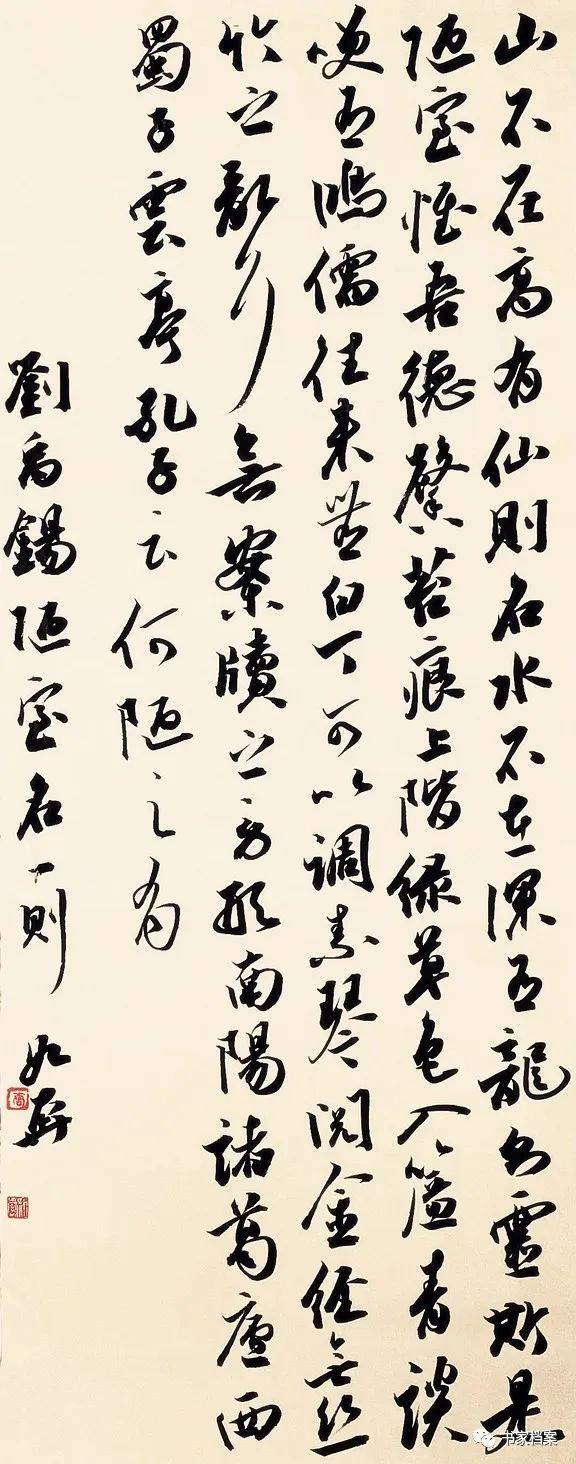 山不在高有仙則名水不在深有龍則靈斯是
陋室惟吾德馨苔痕上階緑草色入簾青談
笑有鴻儒往來無白丁可以調素琴閲金經無絲
竹之亂耳無案牘之勞形南陽諸葛廬西
蜀子雲亭孔子云何陋之有
劉禹錫陋室名一則
书家档案